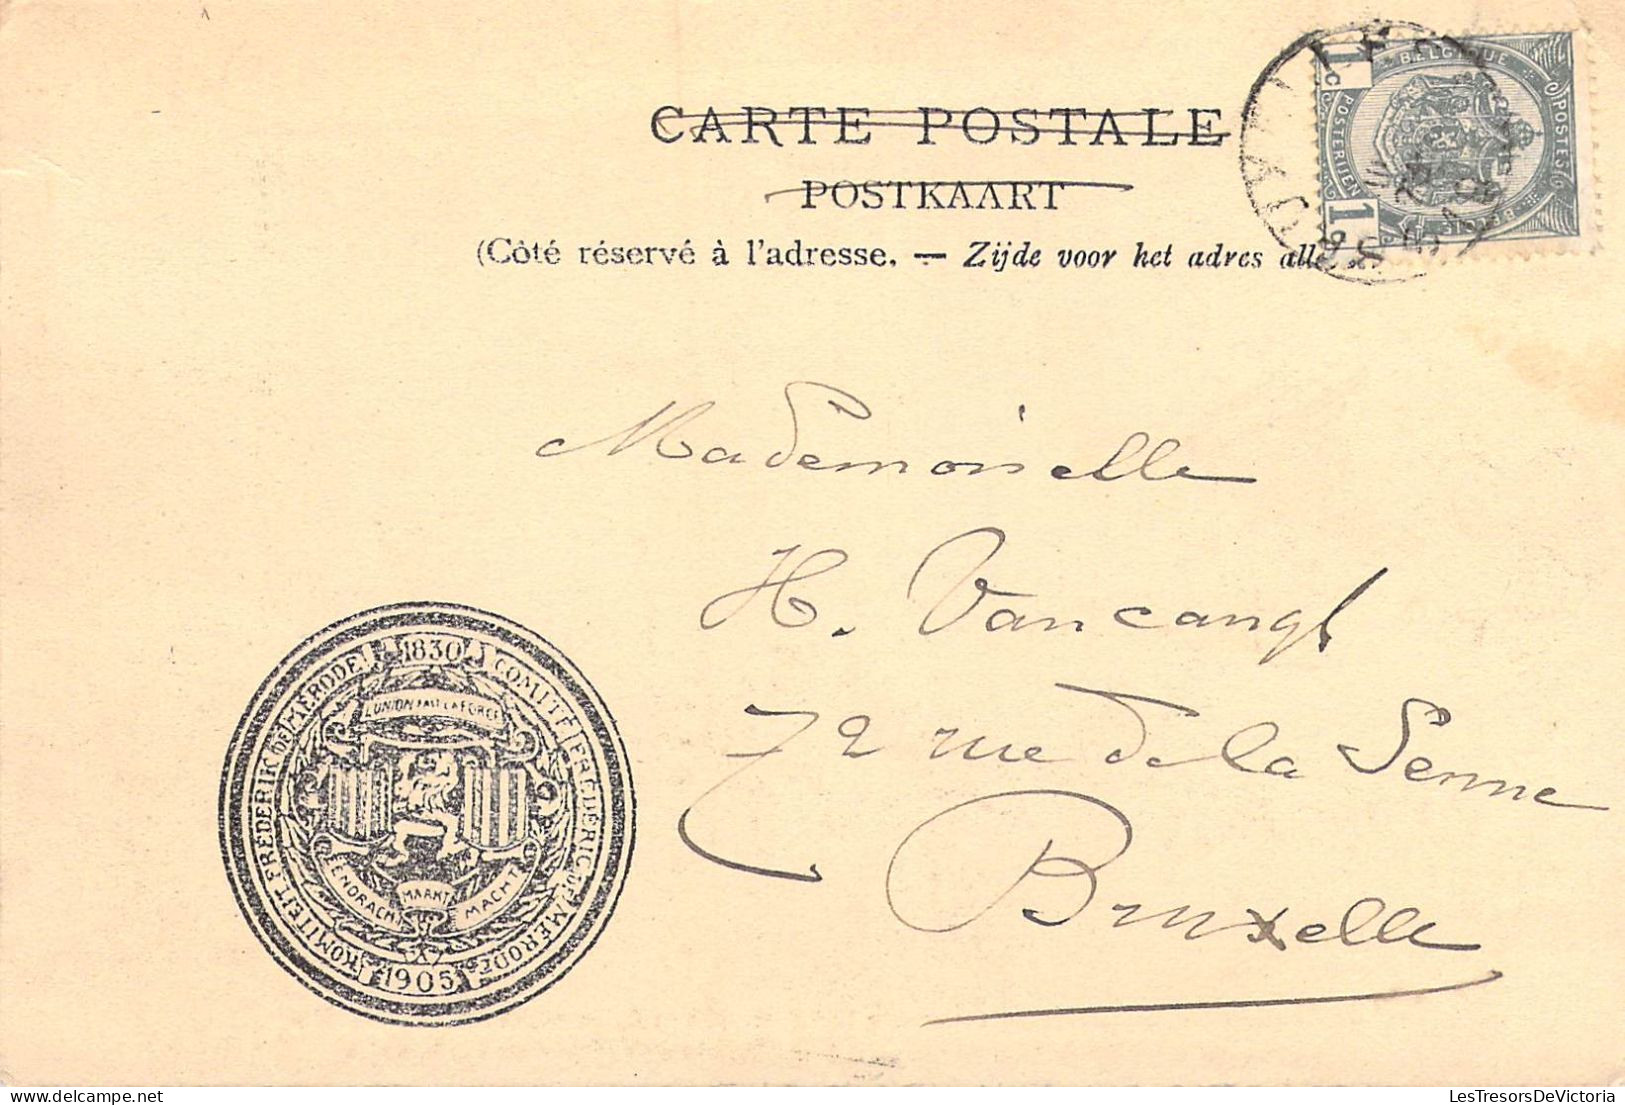 CARTE POSTALE
POSTKAART
(Côté réservé à l'adresse. — Zijde voor het adres
BELGIQUE
POSTES
POSTERIJEN
1 C
1
Mademoiselle
H. Vancangh
72 rue de la Senne
Bruxelle
1830
COMITÉ FRÉDÉRIC DE MÉRODE
1905
KOMITEIT FREDERIK DE MERODE
L'UNION FAIT LA FORCE
EENDRACHT MAAKT MACHT
LesTresorsDeVictoria